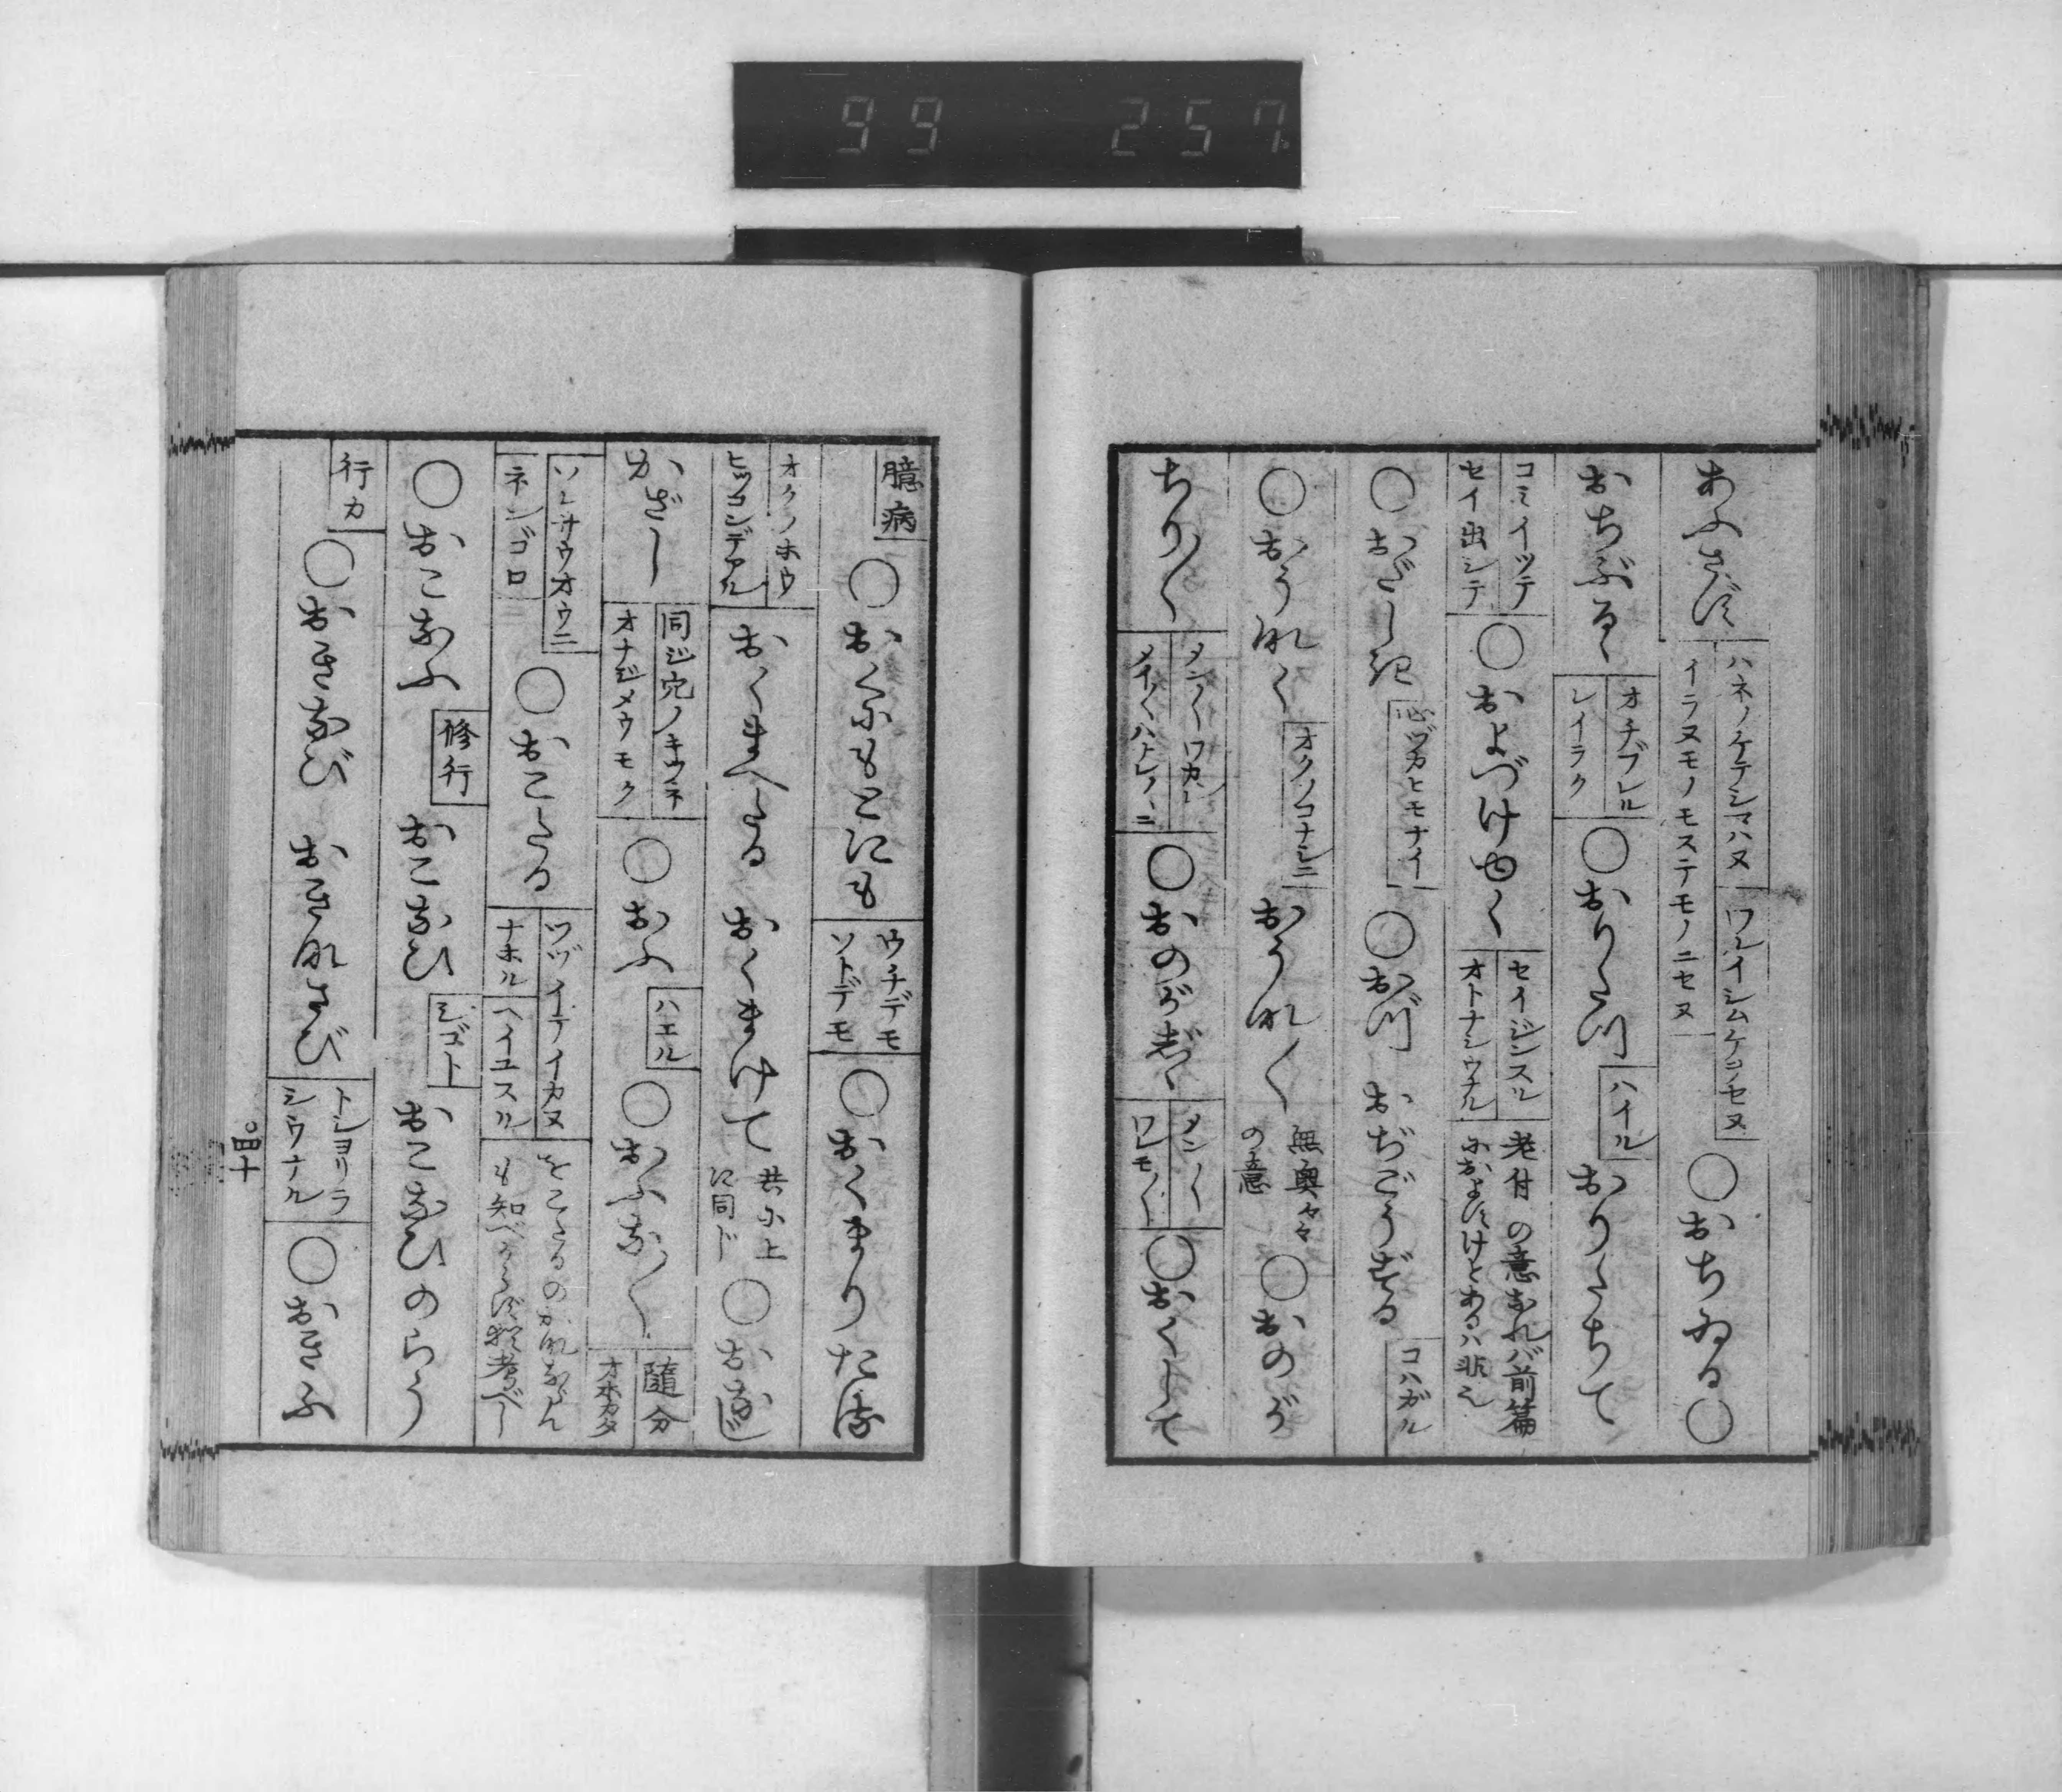 99 257
あふさず
ハネノケテシマハヌ
イラヌモノモステモノニセヌ
ワルイシムケヲセヌ
○おちゐる○
おちぶるゝ
オチブレル
レイラク
○おりたつ
ハイル
おりたちて
コミイツテ
セイ出シテ
○およづけゆく
セイジンスル
オトナシウナル
老付の意なれバ前篇
におよすけとあるハ非也
○おだしき
心ヅカヒモナイ
○おづ
おぢごうずる
コハガル
○おうなく
オクノコナシニ
おうな〱
無奥々々
の意
○おのが
ちり〲
メン〱ワカレ
メイ〱ハナレ〲ニ
○おのがじゝ
メン〱
ワレモ〱
○おくして
臆病
○おくにもとにも
ウチデモ
ソトデモ
○おくまりたる
オクノホウ
ヒツコンデアル
おくまへたる
おくまけて
共に上
に同ド
○おなじ
かざし
同ジ穴ノキツネ
オナジメウモク
○おふ
ハエル
○おふな〱
随分
オホカタ
ソレサウオウニ
ネンゴロニ
○おこたる
ツヾイテイカヌ
ナホル
ヘイユスル
も知べからず猶考べし
○おこなふ
修行
おこなひ
シゴト
おこなひのらう
行力
○おきなび
おきなさび
トシヨリラ
シウナル
○おきふ
○四十